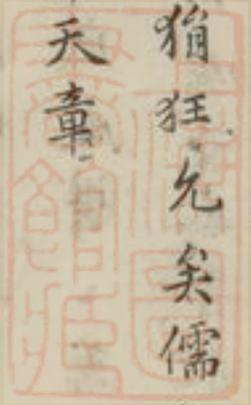 狷狂允矣儒
天章